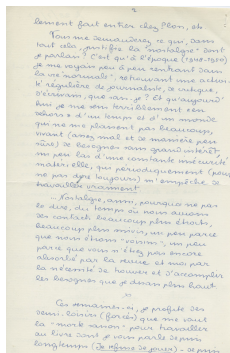 2
lement fait entrer chez Plon, etc
Vous me demanderez ce qui, dans
tout cela, justifie la "nostalgie" dont
je parlais? C'est qu'à l'époque (1948-1950)
je me voyais peu à peu rentrant dans
la vie "normale", retrouvant une action
régulière de journaliste, de critique,
d'écrivain, que sais-je? Et qu'aujourd'
hui je me sens terriblement "en
dehors" d'un temps et d'un monde
qui ne me plaisent pas beaucoup,
vivant (assez mal et de manière peu
sûre) de besognes sans grand intérêt
un peu là d'une constante insécurité
matérielle, qui périodiquement (pour
ne pas dire toujours) m'empêche de
travailler vraiment.
... Nostalgie, aussi, pourquoi ne pas
le dire, du temps où nous avions
des contacts beaucoup plus étroits,
beaucoup plus amicaux, un peu parce
que nous étions "voisins", un peu
parce que vous n'étiez pas encore
absorbé par la revue et moi par
la nécessité de trouver et d'accomplir
les besognes que je disais plus haut.
Ces semaines-ci, je profite des
demi-loisirs (forcés) que me vaut
la "morte saison" pour travailler
au livre dont je vous parle depuis
longtemps (Je refuse de jouer). Je suis